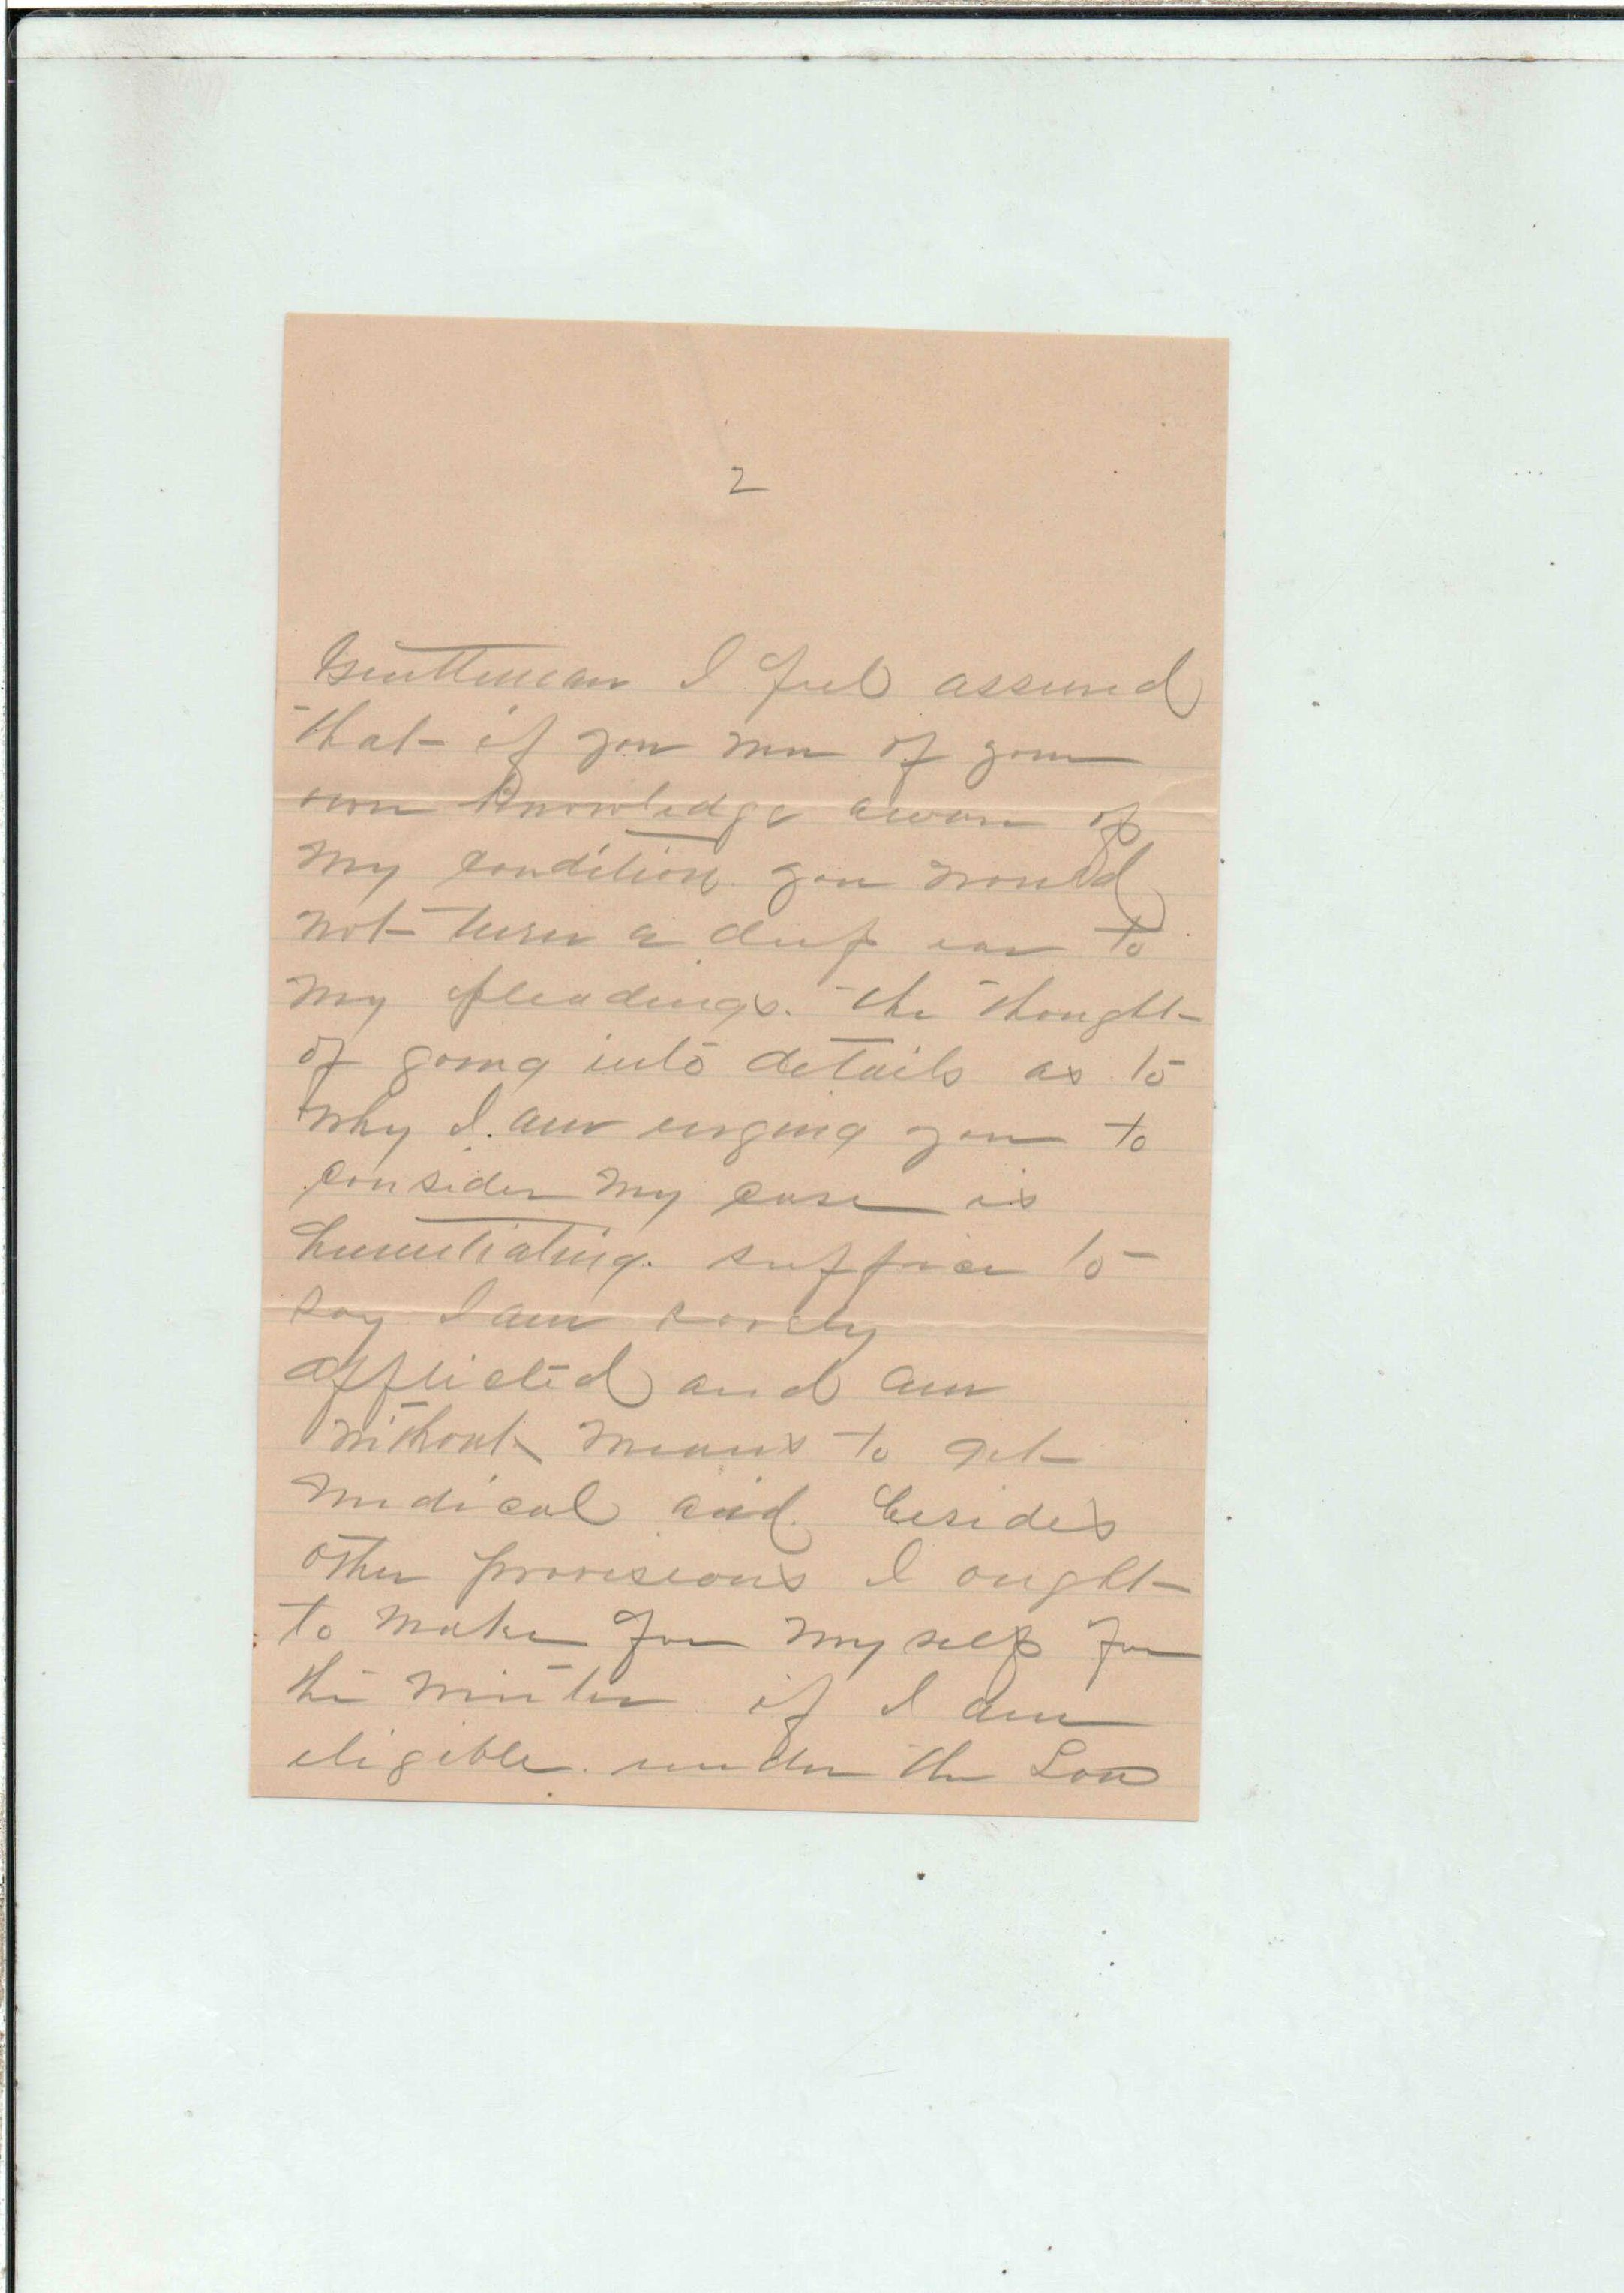 2
Gentleman I feel assured
that if you were of your
own knowledge aware of
my condition you would
not turn a deef ear to
my pleadings. the thought
of going into details as to
why I am urging you to
consider my case is
humiliating. suffice to
say I am sorely
afflicted and am
without means to get
medical aid. besides
other provisions I ought
to make for my self for
the winter if I am
eligible. under the Law